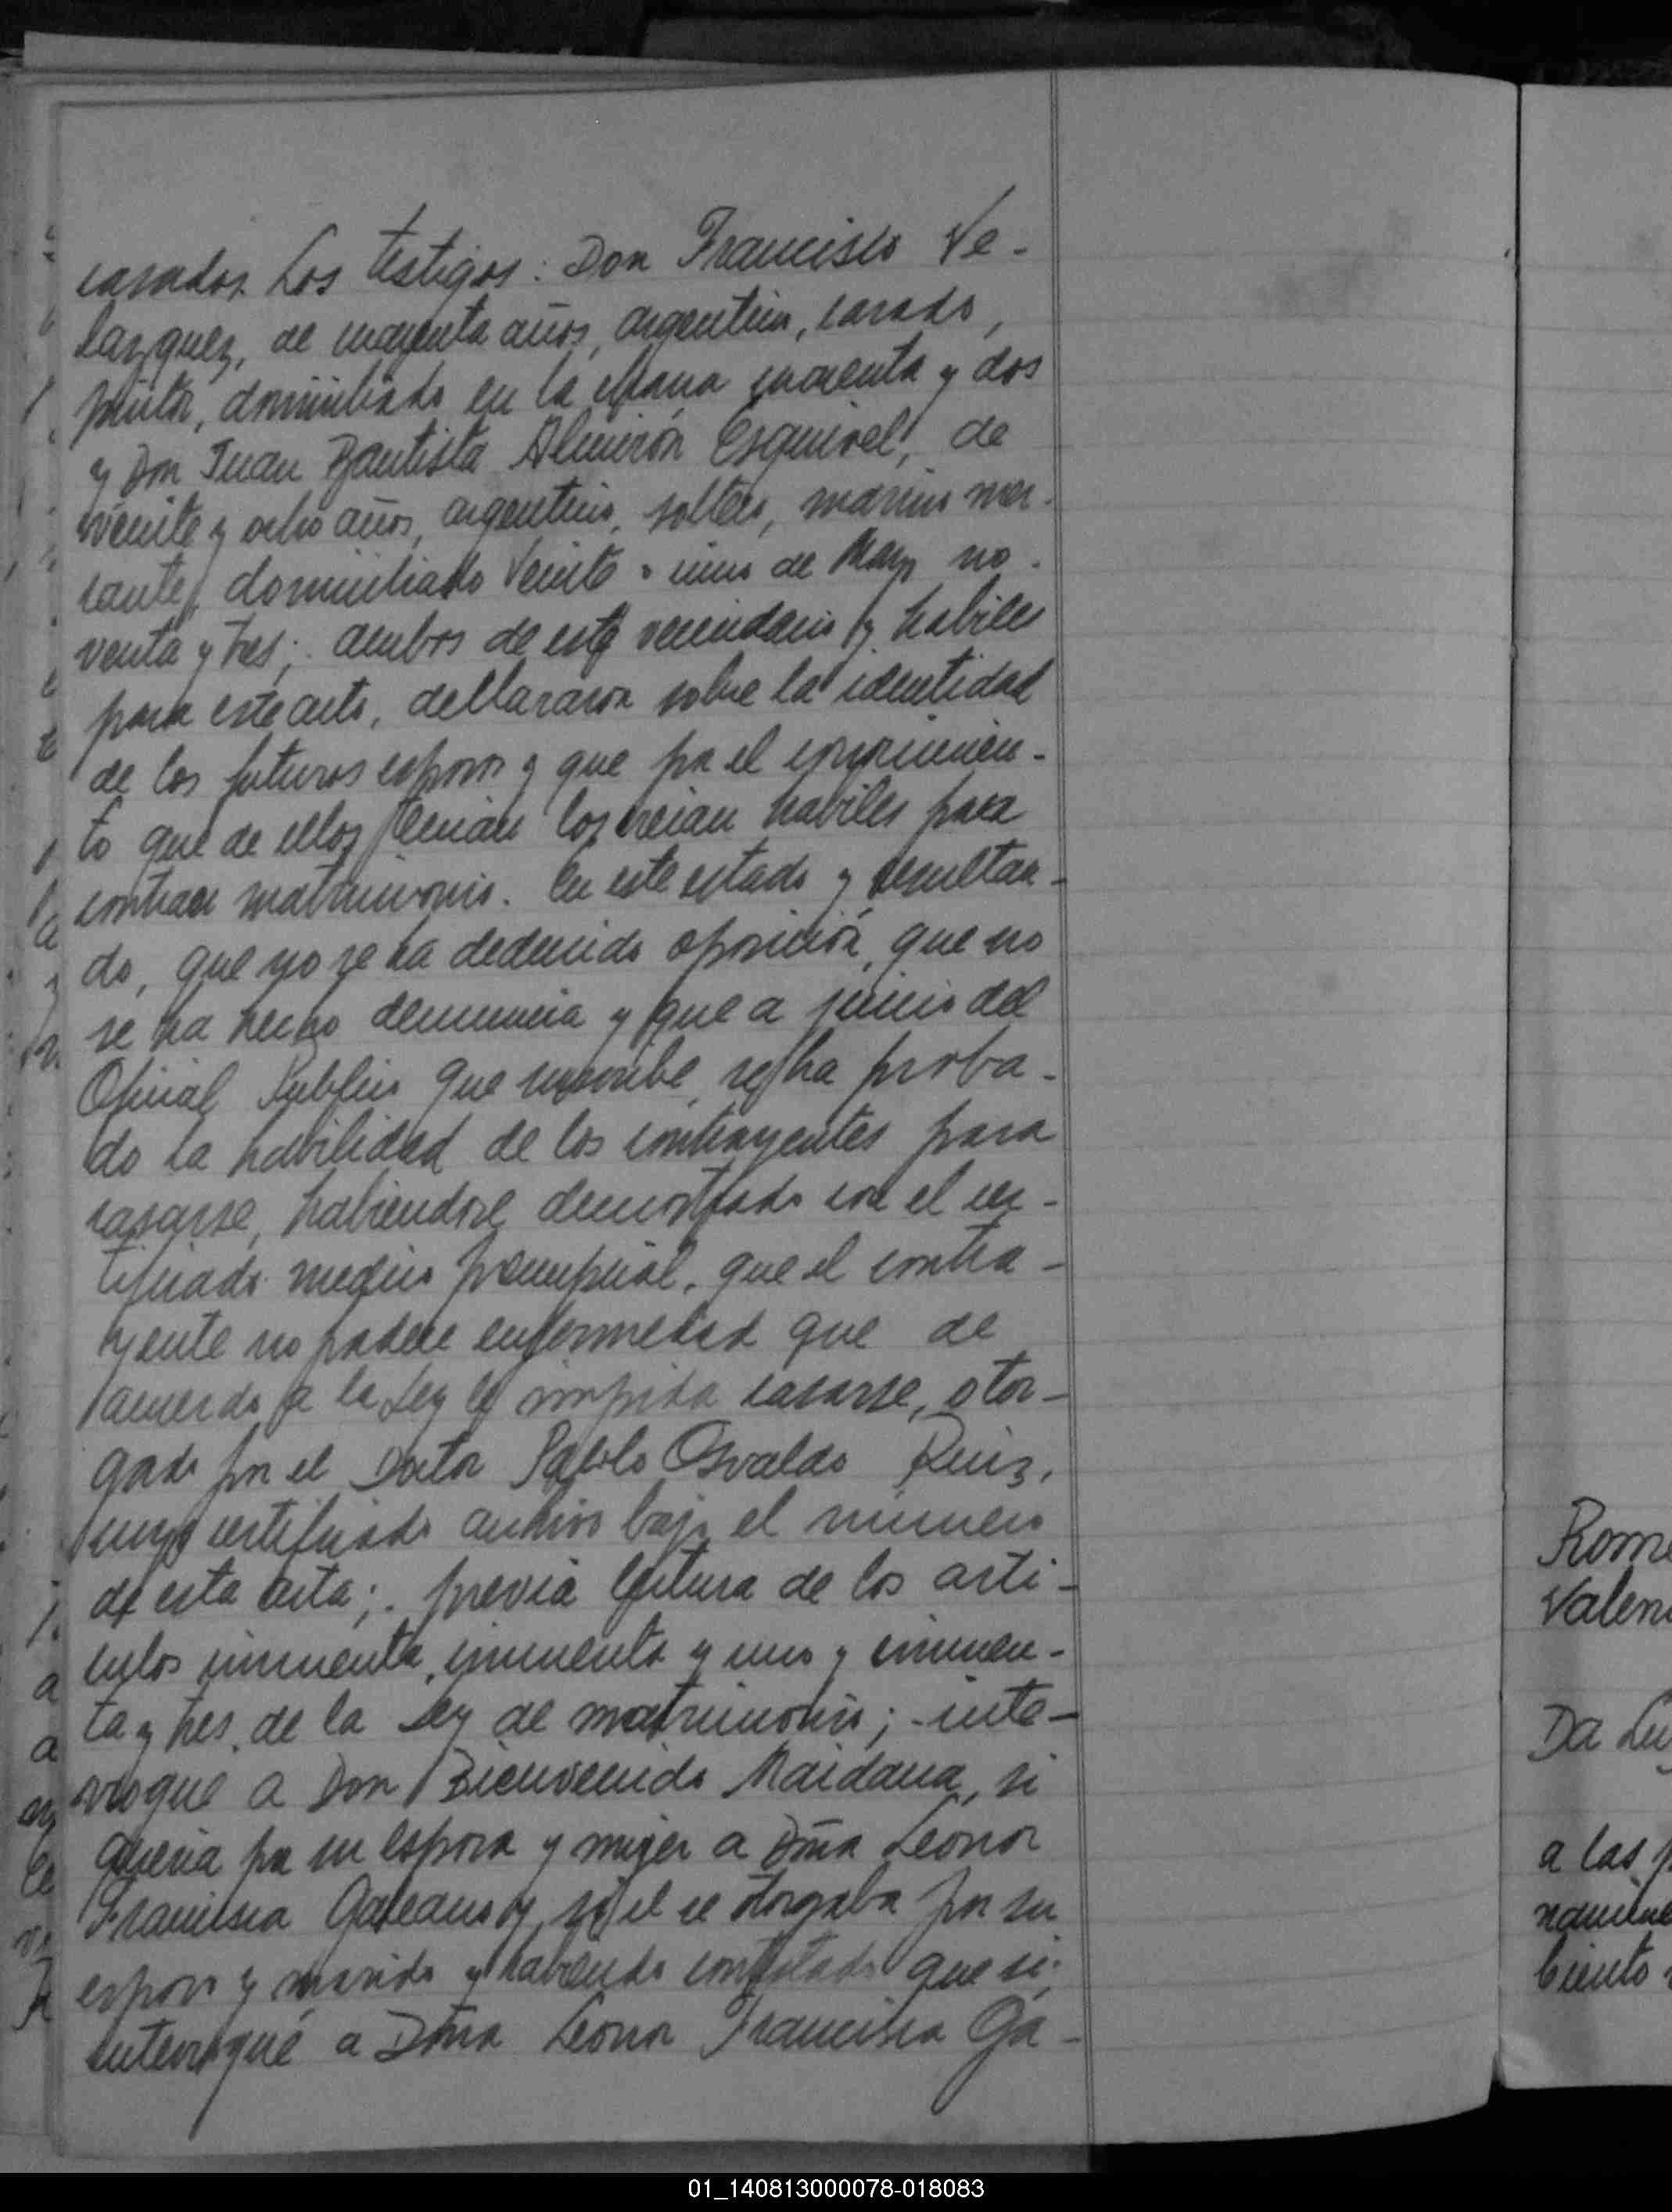 casados. Los testigos: Don Francisco Ve-
lazquez, de años, argentino, casado,
pintor, domiciliado en la y dos
y Don Juan Bautista Almirón Esquivel, de
veinte y ocho años, argentino, soltero, marino mer-
cante, domiciliado Veinte y cinco de Mayo no-
venta y tres; ambos de este vecindario y habiles
para este acto, declararon sobre la identidad
de los futuros esposos y que por el conocimien-
to que de ellos tenian los creian habiles para
contraer matrimonio. En este estado y resultan-
do, que no se ha deducido oposición, que no
se ha hecho denuncia y que a juicio del
Oficial Publico que suscribe, se ha proba-
do la habilidad de los contrayentes para
casarse, habiendose demostrado con el cer-
tificado medico prenupcial, que el contra-
yente no padece enfermedad que de
acuerdo a la Ley le impida casarse, otor-
gado por el Doctor Pablo Osvaldo Ruiz,
cuyo certificado archivo bajo el numero
de esta acta; previa lectura de los arti-
culos cincuenta, cincuenta y uno y cincuen-
ta y tres, de la Ley de matrimonio; inte-
rrogué a Don Bienvenido Maidana, si
queria por su esposa y mujer a Dña Leonor
Francisca Galeano y, si el se otorgaba por su
esposo y marido y habiendo contestado que si;
interrogué a Dña Leonor Francisca Ga-
Rome
Valen
Da Lu
a las
ciento
01_140813000078-018083